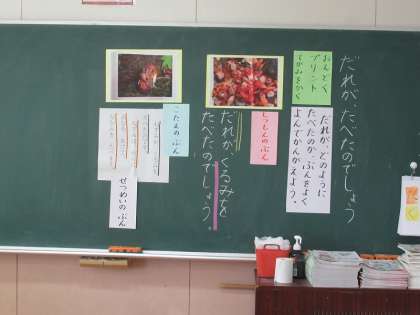 だれが、たべたのでしょう
おんどく
プリント
てがみをかく
だれが、どのように
たべたのか、ぶんをよく
よんでかんがえよう。
しつもんのぶん
だれが、くるみを
たべたのでしょう。
こたえのぶん
せつめいのぶん